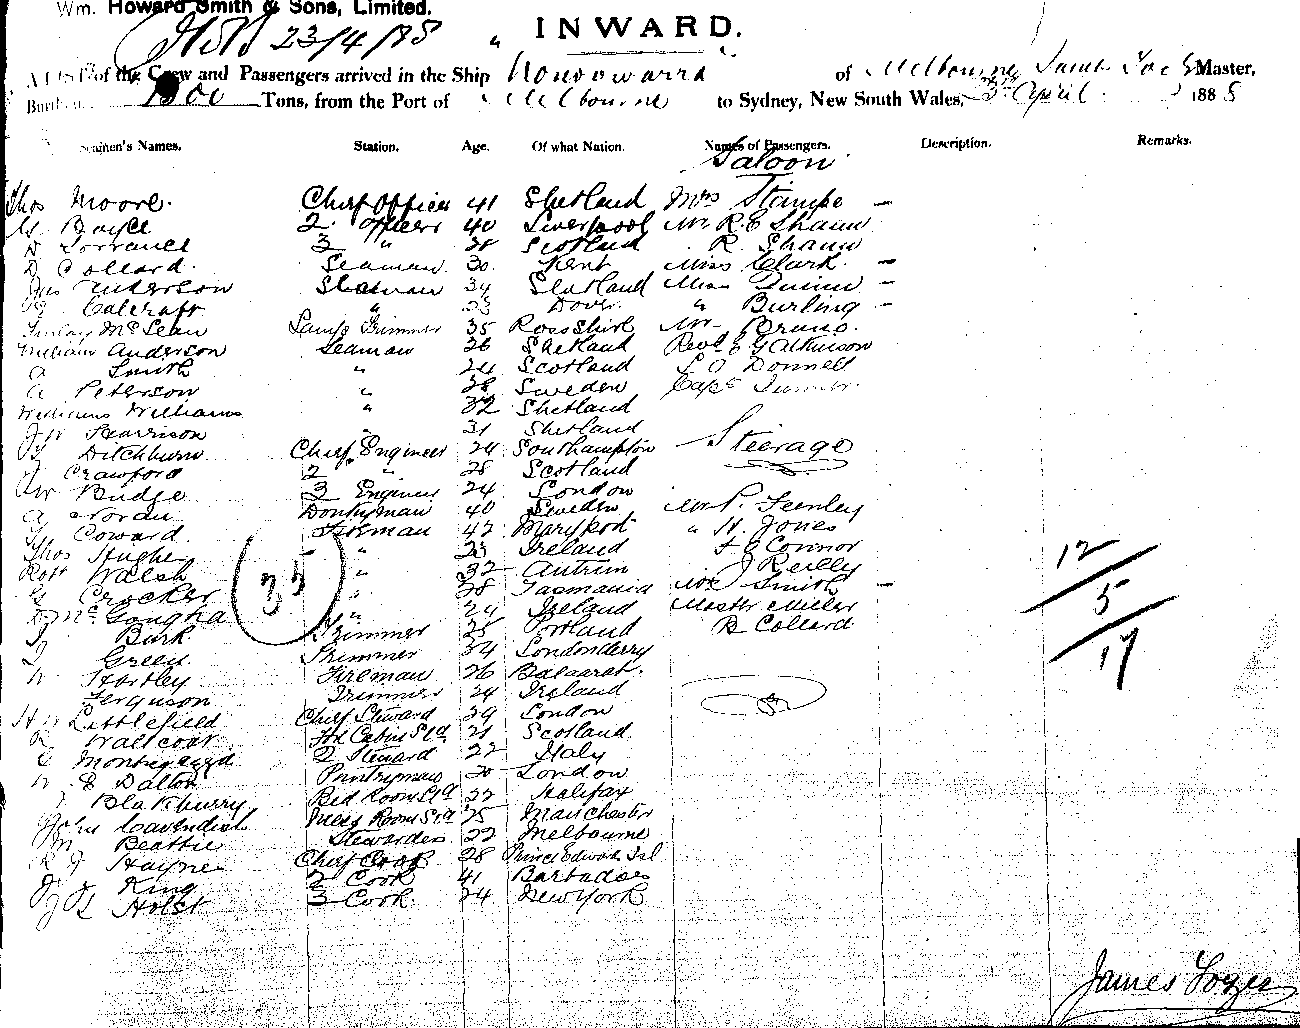 Wm. Howard Smith & Sons, Limited.
INWARD.
23/4/88
A LIST of the Crew and Passengers arrived in the Ship of Melbourne, Master,
Burthen 1500 Tons, from the Port of Melbourne to Sydney, New South Wales, April 1888
Seamen's Names. Station. Age. Of what Nation. Names of Passengers. Description. Remarks.
Saloon
Thos Moore Chief Officer 41 Shetland Mrs Stampe –
Boyce 2 Officer 40 Liverpool Mr R. E Shann
D Torrance 3 " Scotland R. Shann
D Collard Seaman 30 Kent Miss Clark –
Jas Anderson Seaman 34 Shetland Miss Quinn –
Calcraft " 23 Dover " Burling –
Finlay McLean Lamp Trimmer 35 Rosshire Mr Bruno.
William Anderson Seaman 26 Shetland Revd E G Atkinson
a Smith " 24 Scotland O Donnell
a Peterson " 28 Sweden Capt Turner
Williams Williams " 32 Shetland
Harrison " 31 Shetland
Steerage
Ditchburn Chief Engineer 24 Southampton
Crawford 2 " 28 Scotland
Budge 3 Engineer 24 London
a Donkyman 40 Sweden Mr P. Feenley
Coward Fireman 42 Maryport " H. Jones
Thos Hughes " 23 Ireland J O Connor
Robt Walsh " 32 Antrim J Reilly
G Crocker " 28 Tasmania Smith –
" 24 Ireland Master Miller
J Burk Trimmer 25 Portland B Collard
J Green Trimmer 34 Londonderry
Hartley Fireman 26 Balaarat
Ferguson Trimmer 24 Ireland
H W Littlefield Chief Steward 29 London
Fd Cabin Std 21 Scotland
2 Steward 22 Italy
Dalton Pantryman 20 London
Blakburry Bed Room Std 22 Halifax
John Cavendish Mess Room Std 25 Manchester
M Beattie Stewardess 22 Melbourne
R J Haynes Chief Cook 28 Prince Edward Isl
King 2 Cook 41 Barbados
Holst 3 Cook 24 New York
35
12
5
17
James